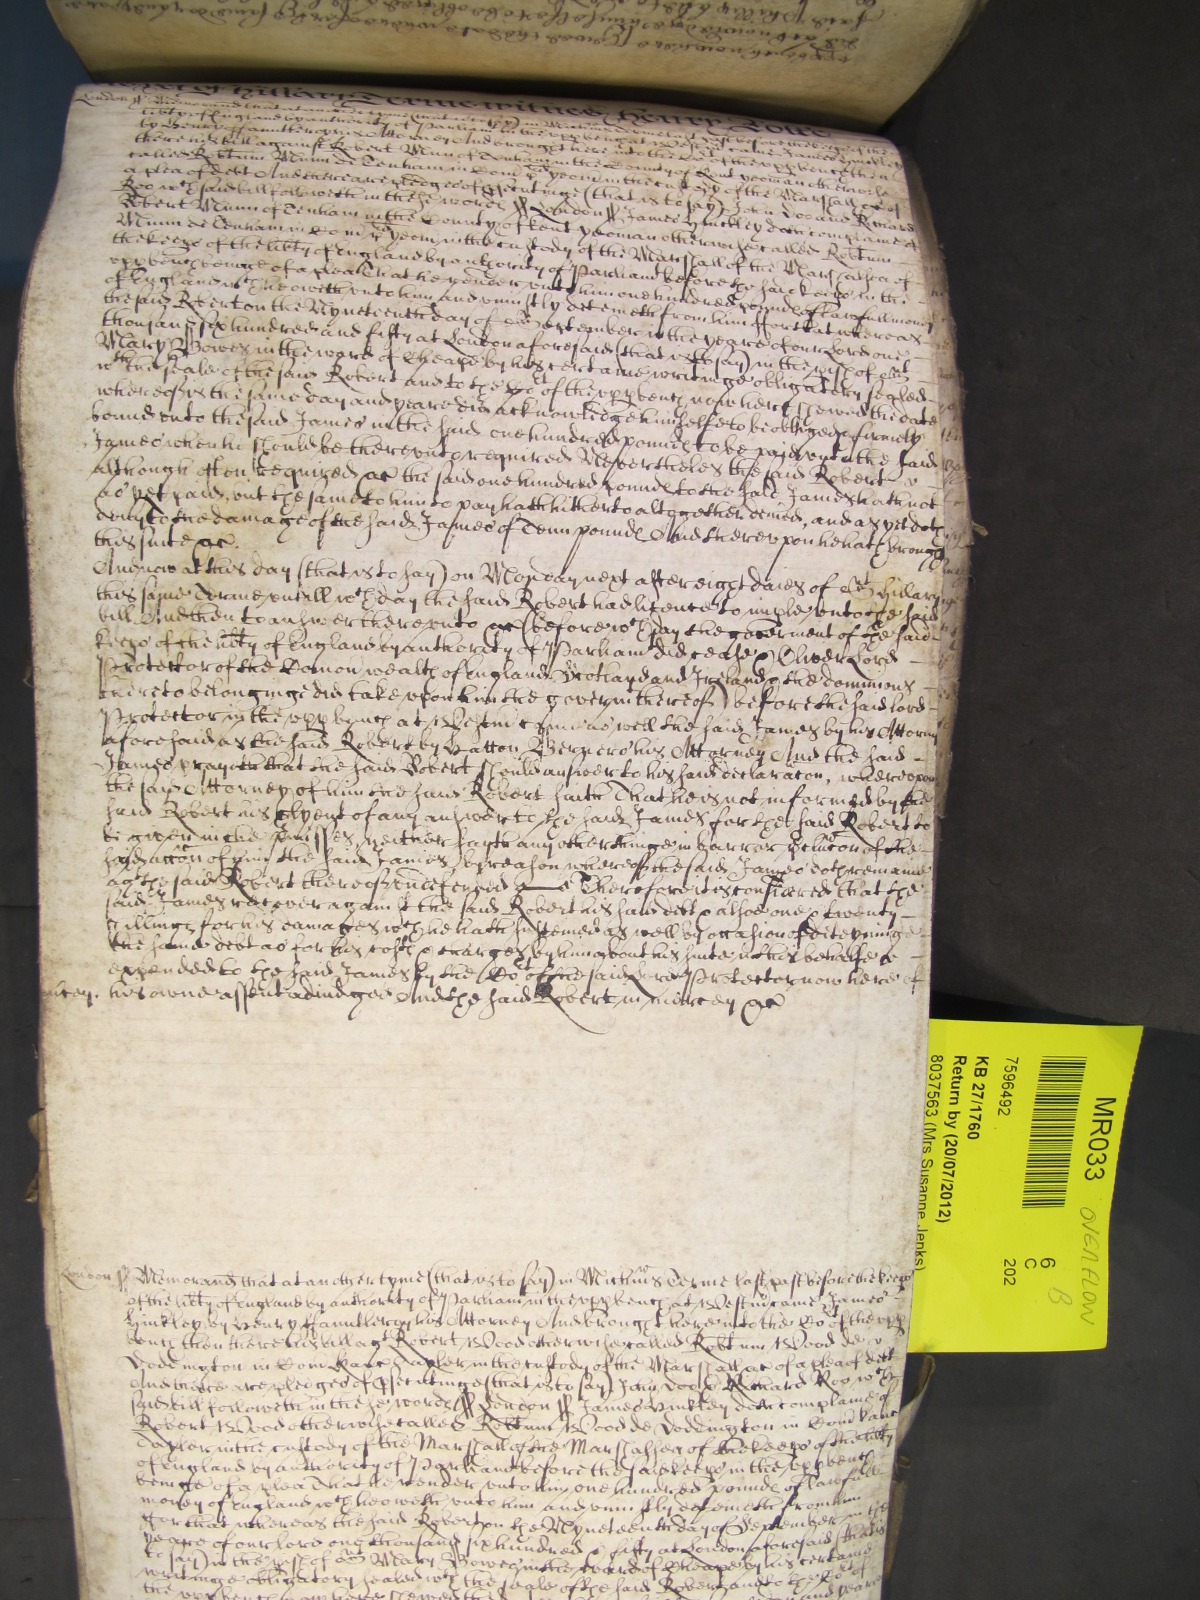 of Hillary Terme witnes Henry Rolle
London ss Memorand that at another tyme (that is to say) in Michmas Terme last past before the keepers of the
libty of England by authority of Parliamt in the upp bench at Westmr came James Hinckley
by Henry his Attorney And brought here into the Co't of the upp bench then
there his bill against Robert Munn of Tenham in the County of Kent yeoman otherwise
called Robtum Munn de Tenham in Com yeom in the custody of the Marshall &c of
a plea of debt And there are pledges of psecutinge (that is to say) John Doo and Richard
Roo wch said bill followeth in these words ss London ss James Hinckley doth complaine of
Robert Munn of Tenham in the County of Kent yeoman otherwise called Robtum
Munn de Tenham in Com yeom in the custody of the Marshall of the Marshalsea of
the keeps of the libty of England by authority of Parliamt before the said keeps in the
upp bench beinge of a plea that he render unto him one hundred pounds of lawfull money
of England wch he oweth unto him and uniustly deteineth from him ffor that whereas
the said Robert on the Nyneteenth day of September in the yeare of our Lord one
thousand six hundred and fifty at London aforesaid (that is to say) in the pish of
Mary Bowes in the ward of Cheape by his certaine writinge obligatory sealed
wth the seale of the said Robert and to the Co't of the upp bench now here shewed the date
whereof is the same day and yeare did acknowledge himselfe to be obliged & firmely
bound unto the said James in the said one hundred pounds to be payd unto the said
James when he should be thereunto required Neverthelesse the said Robert
although often required &c the said one hundred pounds to the said James hath not
as yet paid, but the same to him to pay hath hitherto altogether denied, and as yet doth
deny to the damage of the said James of Tenn pounds And thereupon he hath brought
this suite &c.
And now at this day (that is to say) on Monday next after eight daies of Hillary
this same Terme untill wch day the said Robert had licence to imple unto the said
bill And then to answer thereunto &c (before wch day the governmt of the said
keeps of the libty of England by authority of Parliamt did cease & Oliver Lord
Protector of the Comon wealth of England Scotland and Ireland & the dominions
thereto belonginge did take upon him the governmt thereof) before the said lord
Protector in the upp bench at Westmr came as well the said James by his Attorny
aforesaid as the said Robert by Hatton Berners his Attorney And the said
James prayeth that the said Robert should answer to his said declaracon, whereupon
the said Attorney of him the said Robert saith That he is not informed by the
said Robert his Clyent of any answer to the said James for the said Robert to
be given in the pmisses, neither sayth any other thinge in barr or pclucon of the
said accon of him the said James by reason whereof the said James doth remaine
agt the said Robert thereof undefended &c Therefore it is considered that the
said James recover against the said Robert his said debt & alsoe one & twenty
shillings for his damages wch he hath susteined as well by occasion of deteyninge
the same debt as for his costs & charges by him about his suite in this behalfe
expended to the said James by the Co't of the said Lord Protector now here of
his owne assent adiudged And the said Robert in mercy &c
mcy.
London ss Memorand that at another tyme (that is to say) in Michmas Terme last past before the keeps
of the libty of England by authority of Parliamt in the upp bench at Westmr came James
Hinkley by Henry his Attorney And brought here into the Co't of the upp
bench then there his bill agt Robert Wood otherwise called Robtum Wood de
Doddington in Com Kanc Taylor in the custody of the Marshall &c of a plea of debt
And there are pledges of psecutinge (that is to say) John Doo & Richard Roo wch
said bill followeth in these words ss London ss James Hinkley doth complaine of
Robert Wood otherwise called Robtum Wood de Doddington in Com Kanc
Taylor in the custody of the Marshall of the Marshalsea of the keeps of the libty
of England by authority of Parliamt before the said keeps in the upp bench
beinge of a plea That he render unto him one hundred pounds of lawfull
money of England wch he oweth unto him and uniustly deteineth from him
ffor that whereas the said Robert on the Nyneteenth day of September in the
yeare of our lord one thousand six hundred & fifty at London aforesaid (that is
to say) in the pish of Mary Bowes in the ward of Cheape by his certaine
writinge obligatory sealed wth the seale of the said Robert and to the Co't of
MR033
OVERFLOW
B
6
C
202
7596492
KB 27/1760
Return by (20/07/2012)
8037563 (Mrs Susanne Jenks)